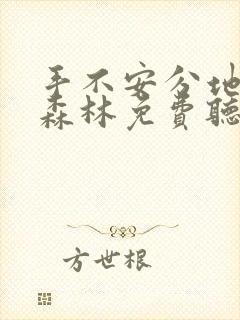 手不安分地
森林免费聽
方世根